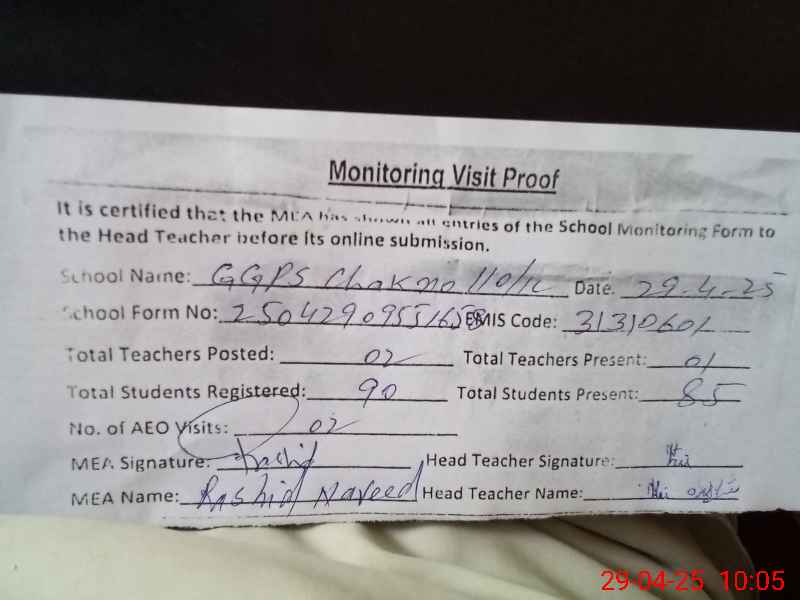 Monitoring Visit Proof
It is certified that the MEA has shown all entries of the School Monitoring Form to
the Head Teacher before its online submission.
School Name: GGPS Chak no 110/12 Date. 29-4-25
School Form No: EMIS Code: 31310601
Total Teachers Posted: 02 Total Teachers Present: 01
Total Students Registered: 90 Total Students Present: 85
No. of AEO Visits: 02
MEA Signature: Rashid Head Teacher Signature:
MEA Name: Rashid Naveed Head Teacher Name:
29-04-25 10:05